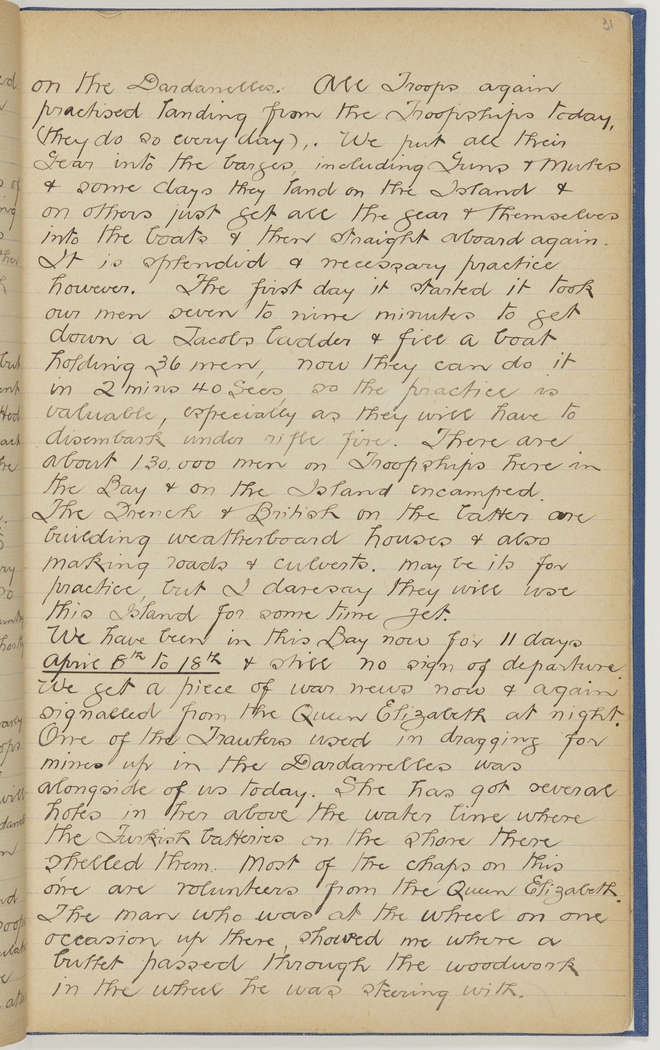 31
on the Dardanelles. All Troops again
practised landing from the Troopships today,
(they do so every day),. We put all their
Gear into the barges, including Guns & Mules
& some days they land on the Island &
on others just get all the gear & themselves
into the boats & then straight aboard again.
It is splendid & necessary practice
however. The first day it started it took
our men seven to nine minutes to get
down a Jacobs ladder & fill a boat
holding 36 men, now they can do it
in 2 mins 40 Secs, so the practice is
valuable, especially as they will have to
disembark under rifle fire. There are
about 130.000 men on Troopships here in
the Bay & on the Island encamped.
The French & British on the latter are
building weatherboard houses & also
making roads & culverts. may be its for
practice, but I daresay they will use
this Island for some time yet.
We have been in this Bay now for 11 days
April 8th to 18th & still no sign of departure.
We get a piece of war news now & again
signalled from the Queen Elizabeth at night.
One of the Trawlers used in dragging for
mines up in the Dardanelles was
alongside of us today. She has got several
holes in her above the water line where
the Turkish batteries on the shore there
shelled them. Most of the chaps on this
one are volunteers from the Queen Elizabeth.
The man who was at the wheel on one
occasion up there, showed me where a
bullet passed through the woodwork
in the wheel he was steering with.